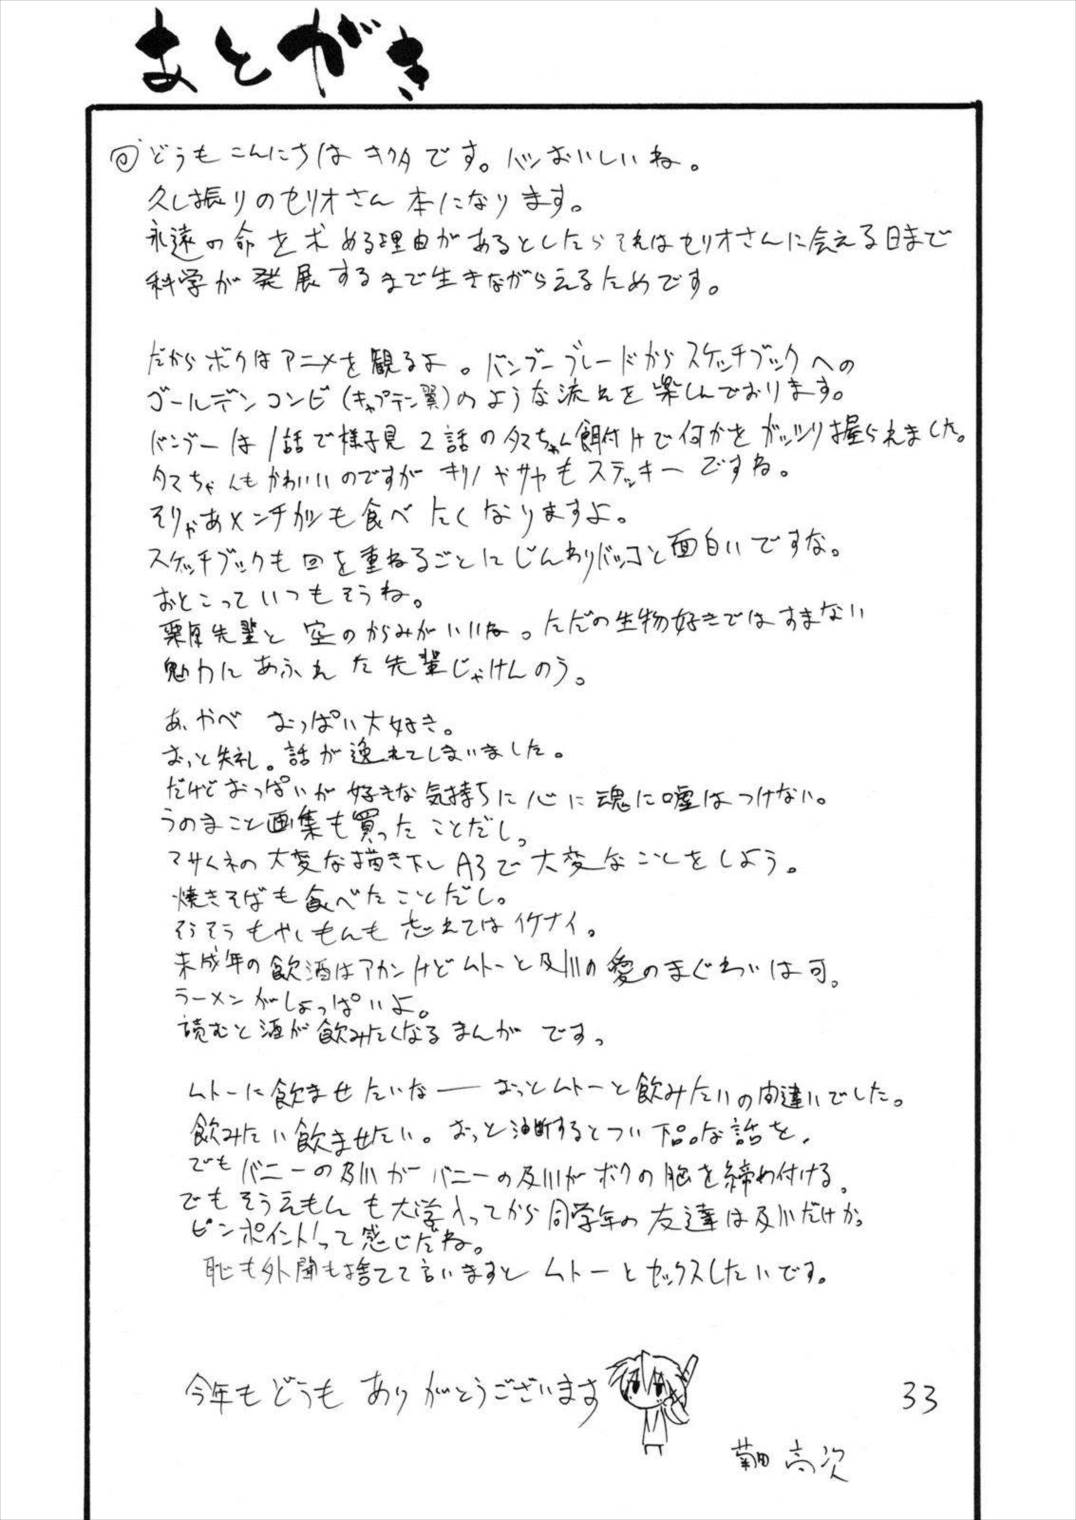 あとがき
どうもこんにちは キクタです。パンおいしいね。
久し振りのセリオさん本になります。
永遠の命を求める理由があるとしたらそれはセリオさんに会える日まで
科学が発展するまで生きながらえるためです。
だからボクはアニメを観るよ。バンブーブレードからスケッチブックへの
ゴールデンコンビ(キャプテン翼)のような流れを楽しんでおります。
バンブーは1話で様子見2話のタマちゃん餌付けで何かをガッツリ握られました。
タマちゃんもかわいいのですが キリノやサヤもステッキーですね。
そりゃあメンチカツも食べたくなりますよ。
スケッチブックも回を重ねるごとにじんわりバッコと面白いですな。
おとこっていつもそうね。
栗原先輩と空のからみがいいね。ただの生物好きではすまない
魅力にあふれた先輩じゃけんのう。
あ、やべ おっぱい大好き。
おっと失礼。話が逸れてしまいました。
だけどおっぱいが好きな気持ちに心に魂に嘘はつけない。
うのまこと画集も買ったことだし。
マサムネの大変な描き下しA3で大変なことをしよう。
焼きそばも食べたことだし。
そうそうもやしもんも忘れてはイケナイ。
未成年の飲酒はアカンけどムトーと及川の愛のまぐわいは可。
ラーメンがしょっぱいよ。
読むと酒が飲みたくなるまんがです。
ムトーに飲ませたいなーーおっとムトーと飲みたいの間違いでした。
飲みたい飲ませたい。おっと油断するとつい下品な話を。
でもバニーの及川がバニーの及川がボクの胸を締め付ける。
でもそうえもんも大学入ってから同学年の友達は及川だけか。
ピンポイント!って感じだね。
恥も外聞も捨てて言いますとムトーとセックスしたいです。
今年もどうもありがとうございます
33
菊田高次